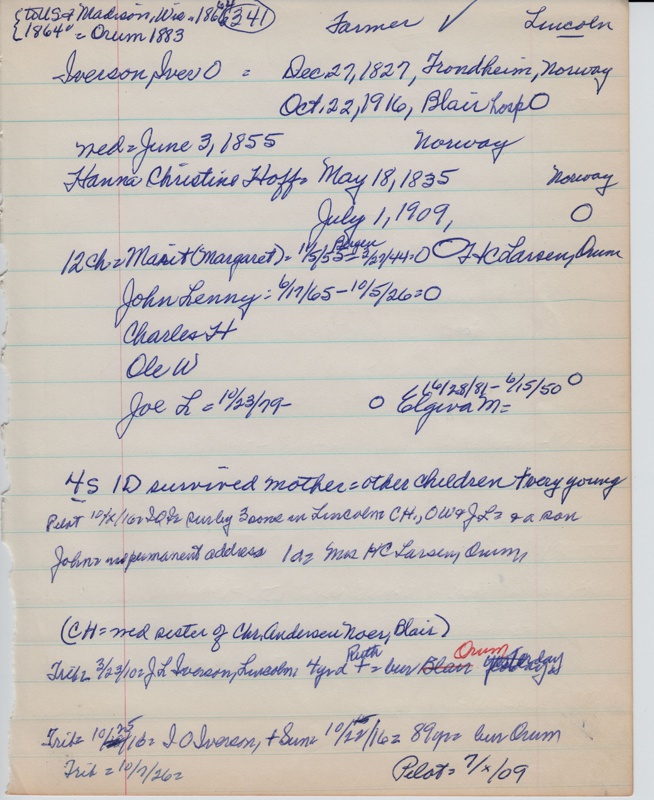 {to US & Madison, Wis = 1864 341 Farmer ✓ Lincoln
{1864 = Orum 1883
Iverson, Iver O = Dec. 27, 1827, Trondheim, Norway
Oct. 22, 1916, Blair hosp O
med = June 3, 1855 Norway
Hanna Christine Hoff = May 18, 1835 Norway
July 1, 1909, O
12 ch = Marit (Margaret) = 11/5/55 Bergen - 3/27/44 = O O HC Larsen, Orum
John Lenny = 6/17/65 - 10/5/26 = O
Charles H
Ole W
Joe L = 10/23/79 - O Elgiva M = 6/28/81 - 6/15/50 O
4 s 1 D survived mother = other children + very young
Pilot 10/x/16 = I O I = sur by 3 sons in Lincoln = CH, OW & JL = & a son
John = no permanent address 1 d = Mrs HC Larsen, Orum,
(CH = med sister of Chr. Andersen Noer, Blair)
Trib = 3/23/10 = J L Iverson, Lincoln, 4 yr d Ruth + = bur Orum yesterday
Trib = 10/25/16 = I O Iverson, + Sun = 10/22/16 = 89 yr = bur Orum
Trib = 10/7/26 = Pilot = 7/x/09